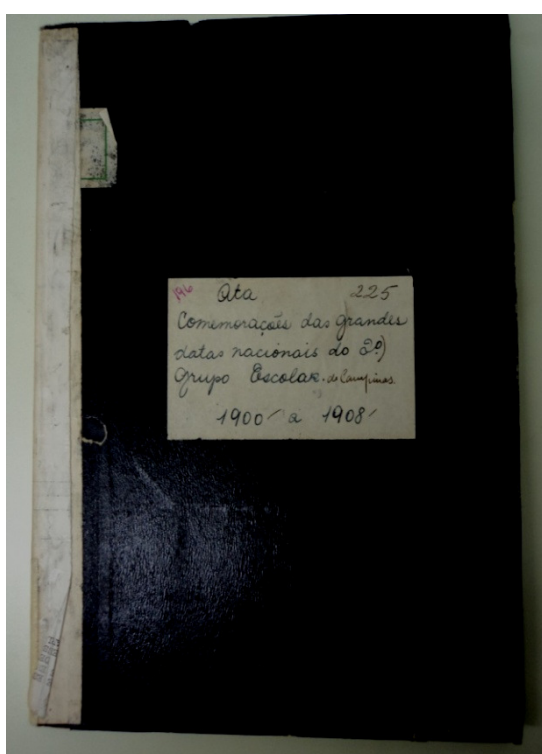 196 Ata 225
Comemorações das grandes
datas nacionais do 2º)
Grupo Escolar. de Campinas.
1900 a 1908